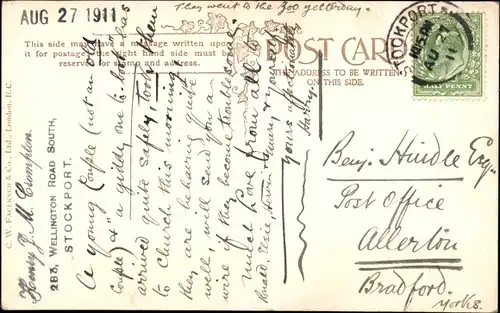 AUG 27 1911
They went to the Zoo yesterday.
This side may have a message written upon
it for postage. The right hand side must be
reserved for stamp and address
POST CARD
ADDRESS TO BE WRITTEN
ON THIS SIDE.
STOCKPORT
HALF PENNY
C. W. FAULKNER & Co., Ltd., London, E.C.
Henry J. M. Crompton.
283, WELLINGTON ROAD SOUTH,
STOCKPORT.
A young couple (not an old
couple) & "a giddy one to boot" has
arrived quite safely. Took them
to Church this morning.
They are behaving quite
well, will send you a
wire if they become troublesome.
Much Love from all to
Harry & you
yours affectionately
Harry.
Benj. Hindle Esqr.
Post Office
Allerton
Bradford.
Yorks.